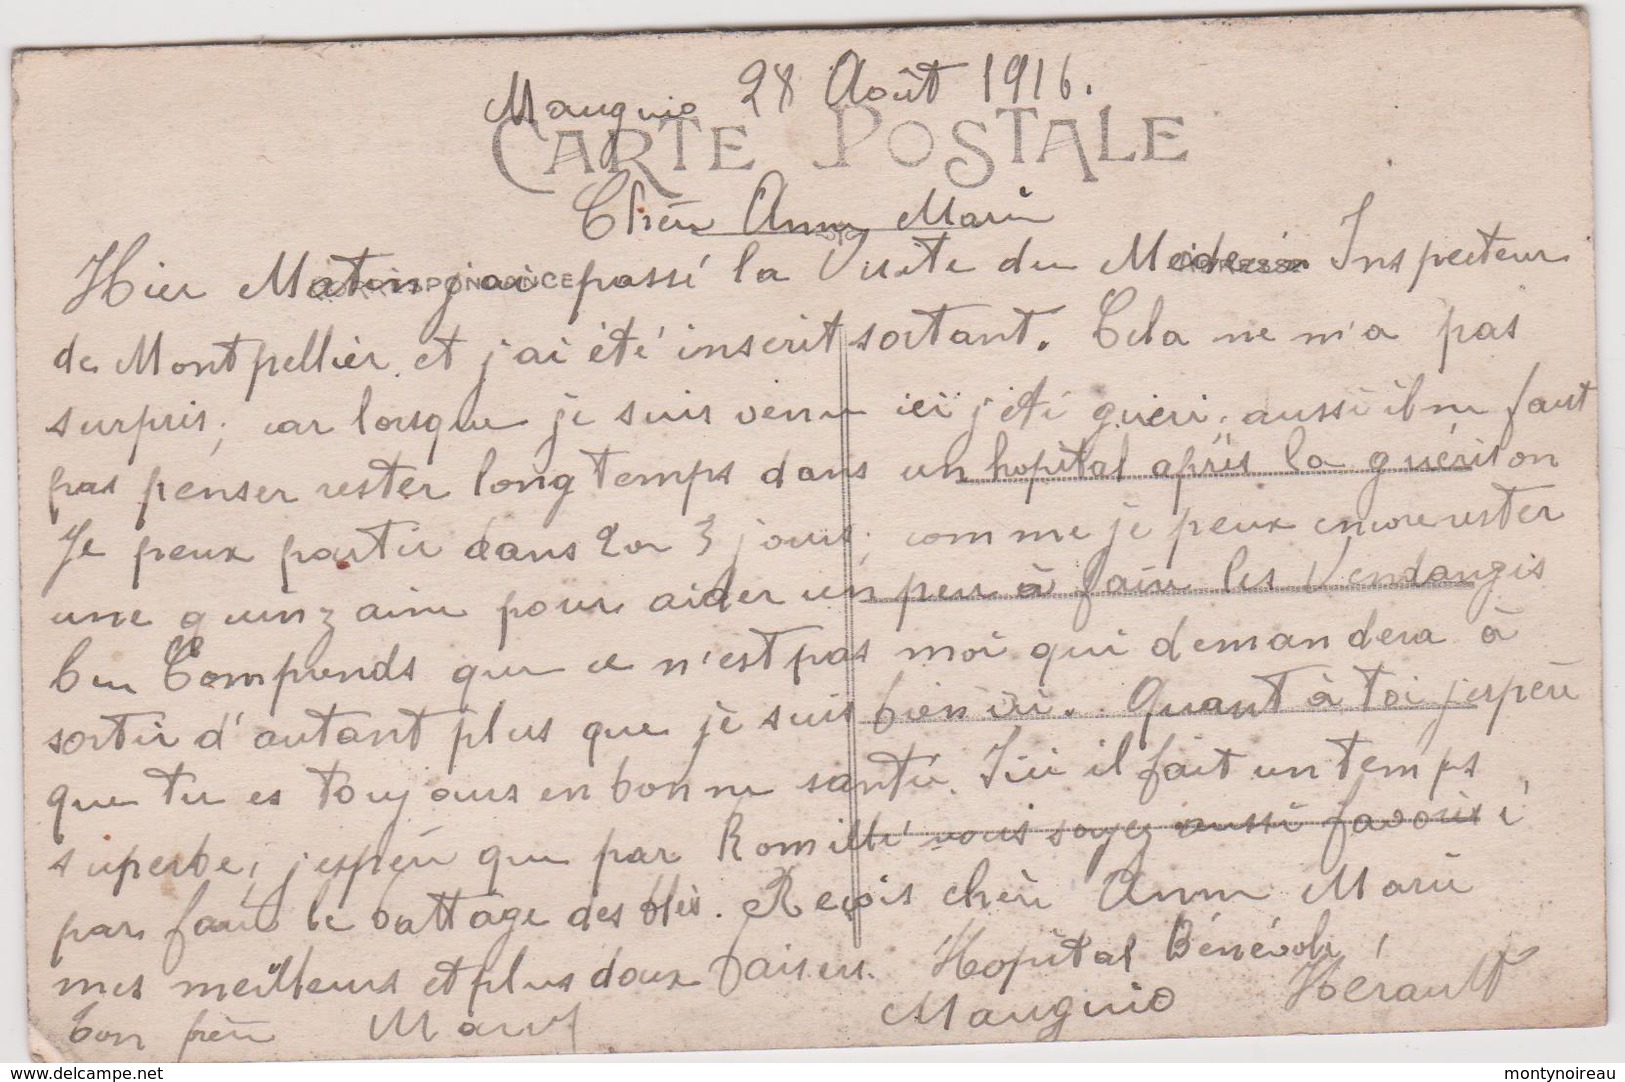 Mauguio 28 Août 1916.
CARTE POSTALE
Chère Anna Marie
CORRESPONDANCE ADRESSE
Hier Matin j'ai passé la Visite du Médecin Inspecteur
de Montpellier et j'ai été inscrit sortant. Cela ne m'a pas
surpris, car lorsque je suis venu ici j'été guéri. aussi il ne faut
pas penser rester longtemps dans un hopital après la guérison
Je peux partir dans 2 ou 3 jours, comme je peux encore rester
une quinzaine pour aider un peu à faire les Vendanges
Comprends que ce n'est pas moi qui demandera à
sortir d'autant plus que je suis bien ici. Quant à toi j'espère
que tu es toujours en bonne santé. Ici il fait un temps
superbe, j'espère que par Romillé vous soyez aussi favorisé
par faire le battage des blés. Reçois chère Anna Marie
mes meilleurs et plus doux baisers. Hopital Bénévole,
bon frère Marcel Mauguio Hérault
www.delcampe.net montynoireau